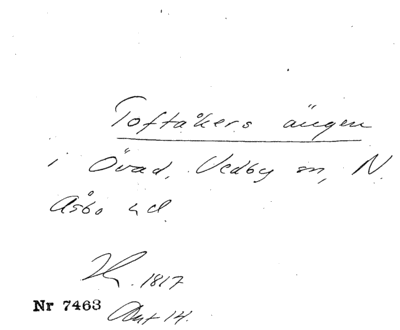 Toftåkers ängen
i Övad, Vedby sn, N.
Åsbo hd.
1817
Nr 7463
Akt 14.